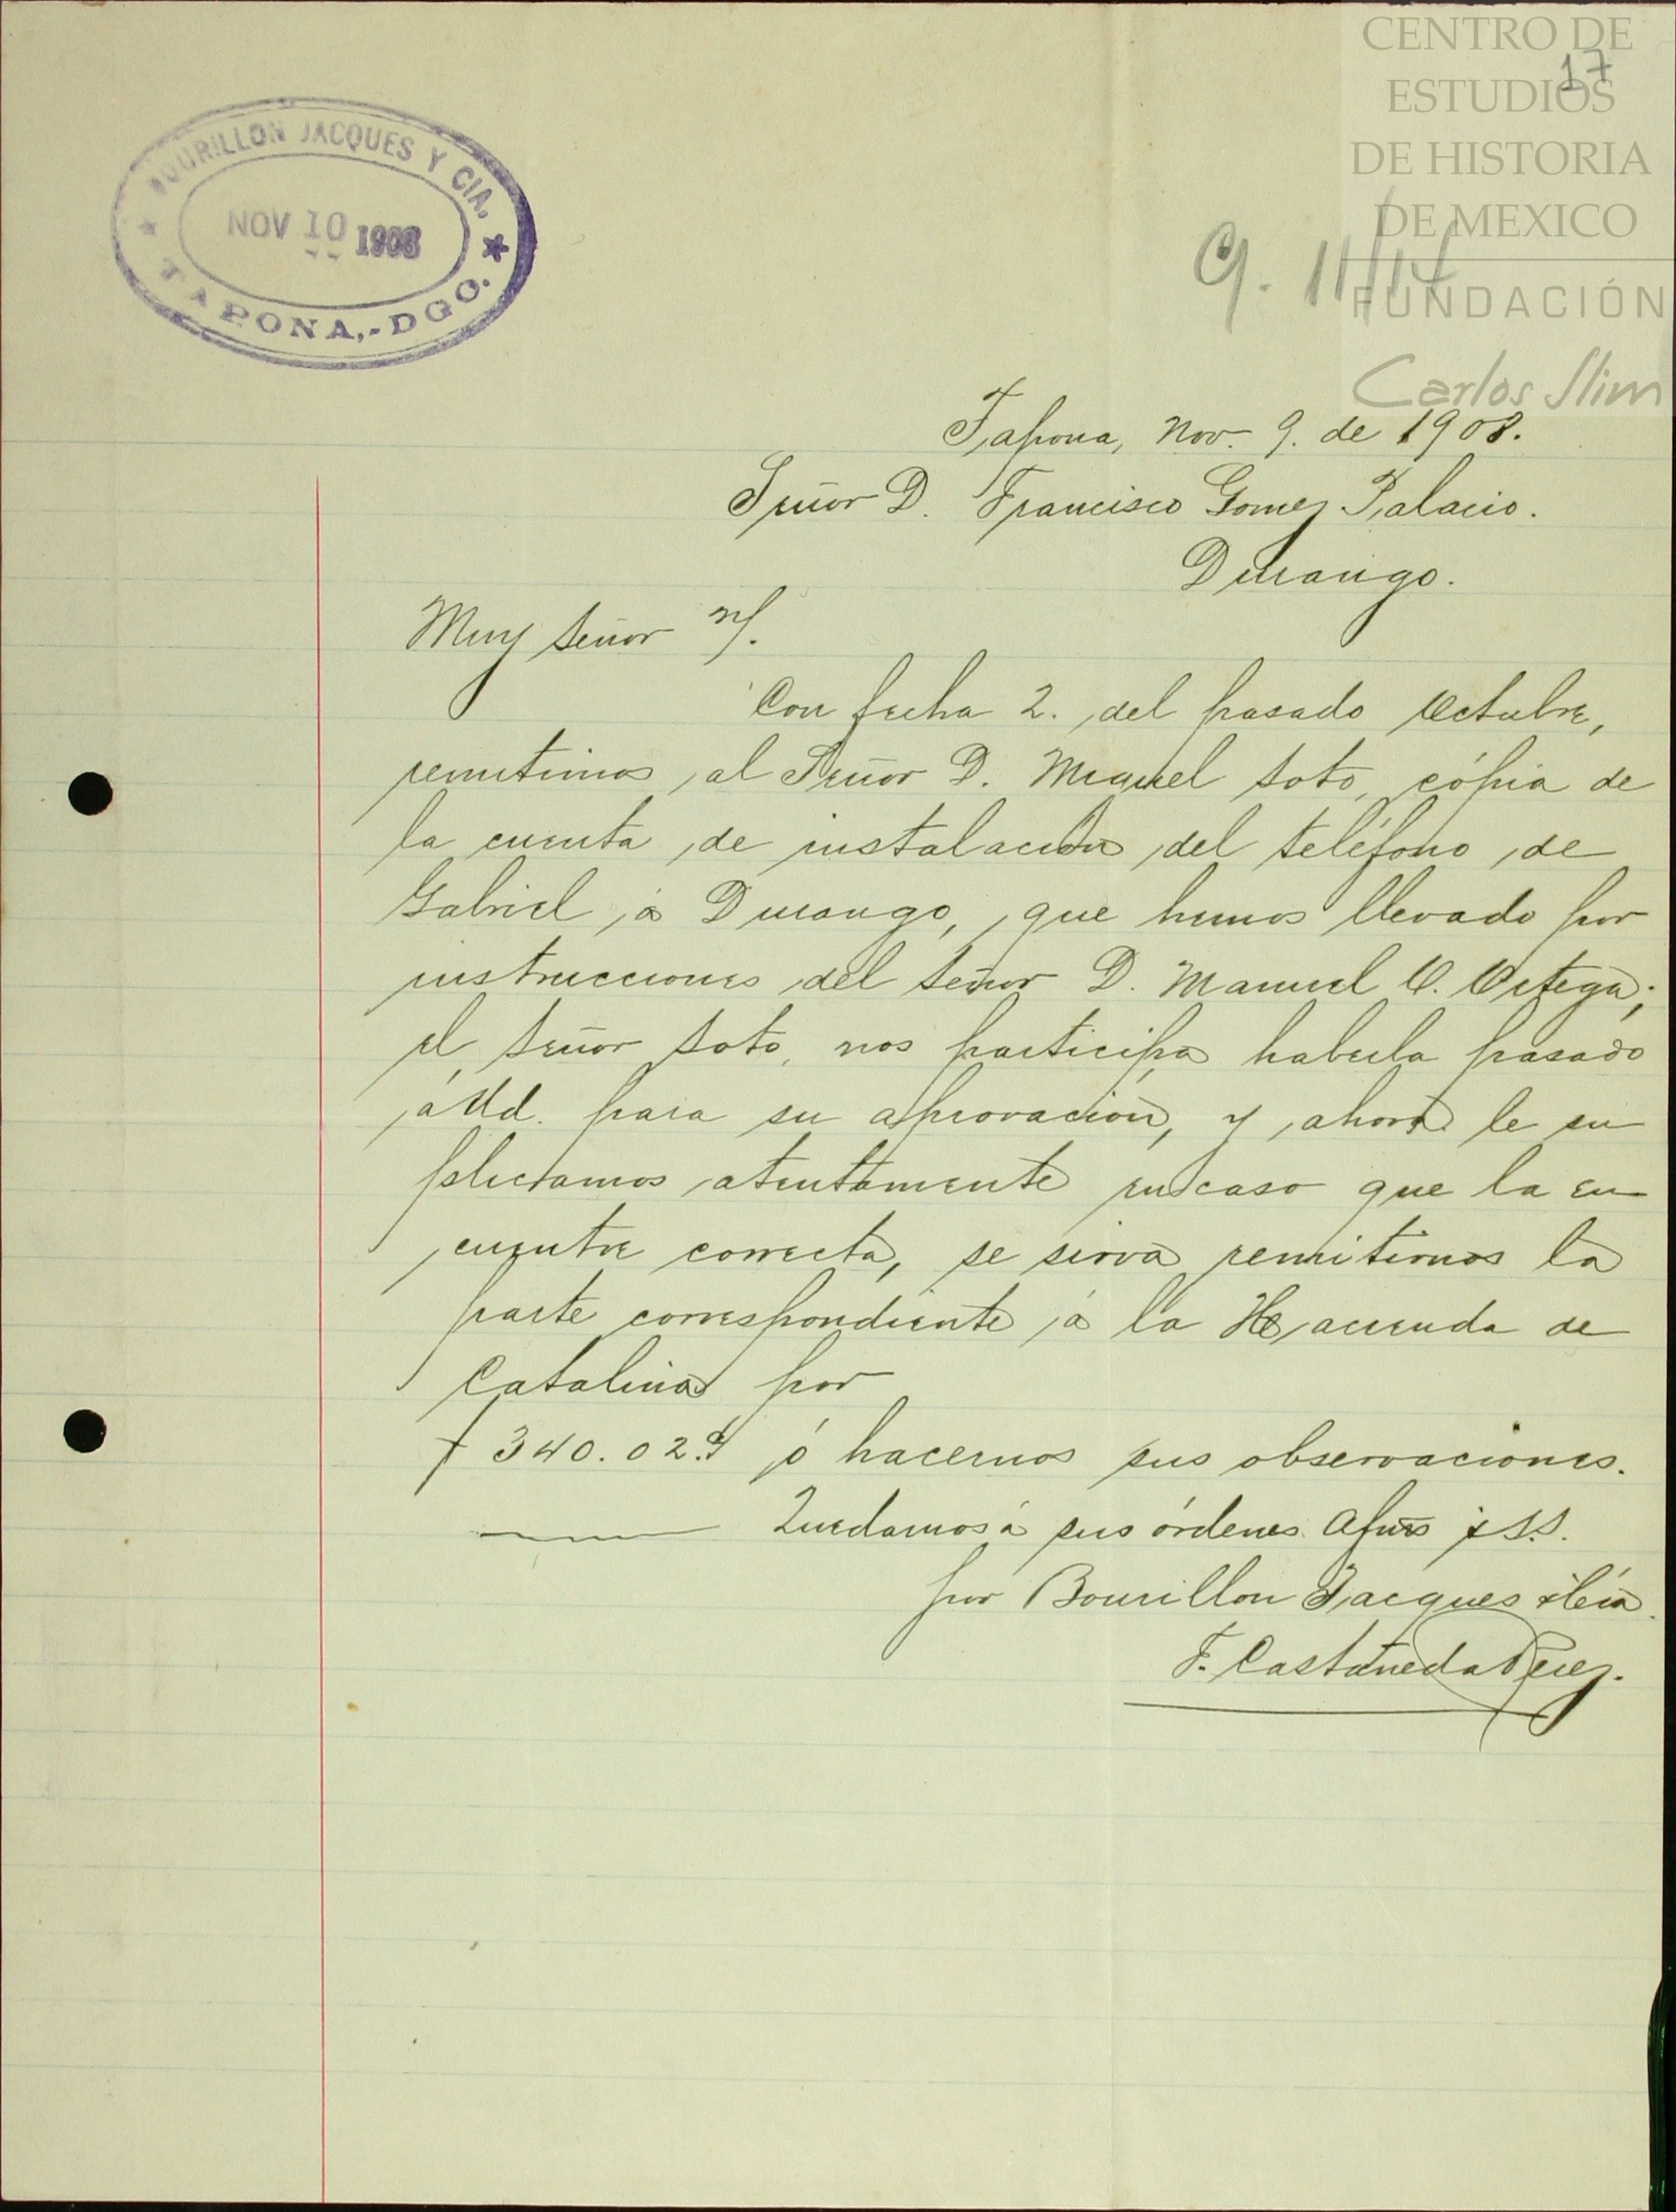 CENTRO DE
ESTUDIOS
DE HISTORIA
DE MEXICO
FUNDACIÓN
Carlos Slim
17
BOURILLON JACQUES Y CIA.
NOV 10 1908
TAPONA,-DGO.
9. 11/14
Tapona, Nov. 9. de 1908.
Señor D. Francisco Gomez Palacio.
Durango.
Muy Señor N/.
Con fecha 2. del pasado Octubre,
remitimos al Señor D. Miguel Soto, cópia de
la cuenta de instalación del teléfono de
Gabriel á Durango, que hemos llevado por
instrucciones del Señor D. Manuel C. Ortega;
el Señor Soto, nos participa haberla pasado
á Ud. para su aprovación, y ahora le su
plicamos atentamente en caso que la en
cuentre correcta, se sirva remitirnos la
parte correspondiente á la Hacienda de
Catalina por
$ 340.02.¢ ó hacernos sus observaciones.
Quedamos á sus órdenes Afmos y SS.
por Bourillon Jacques y Cía.
F. Castañeda Perez.